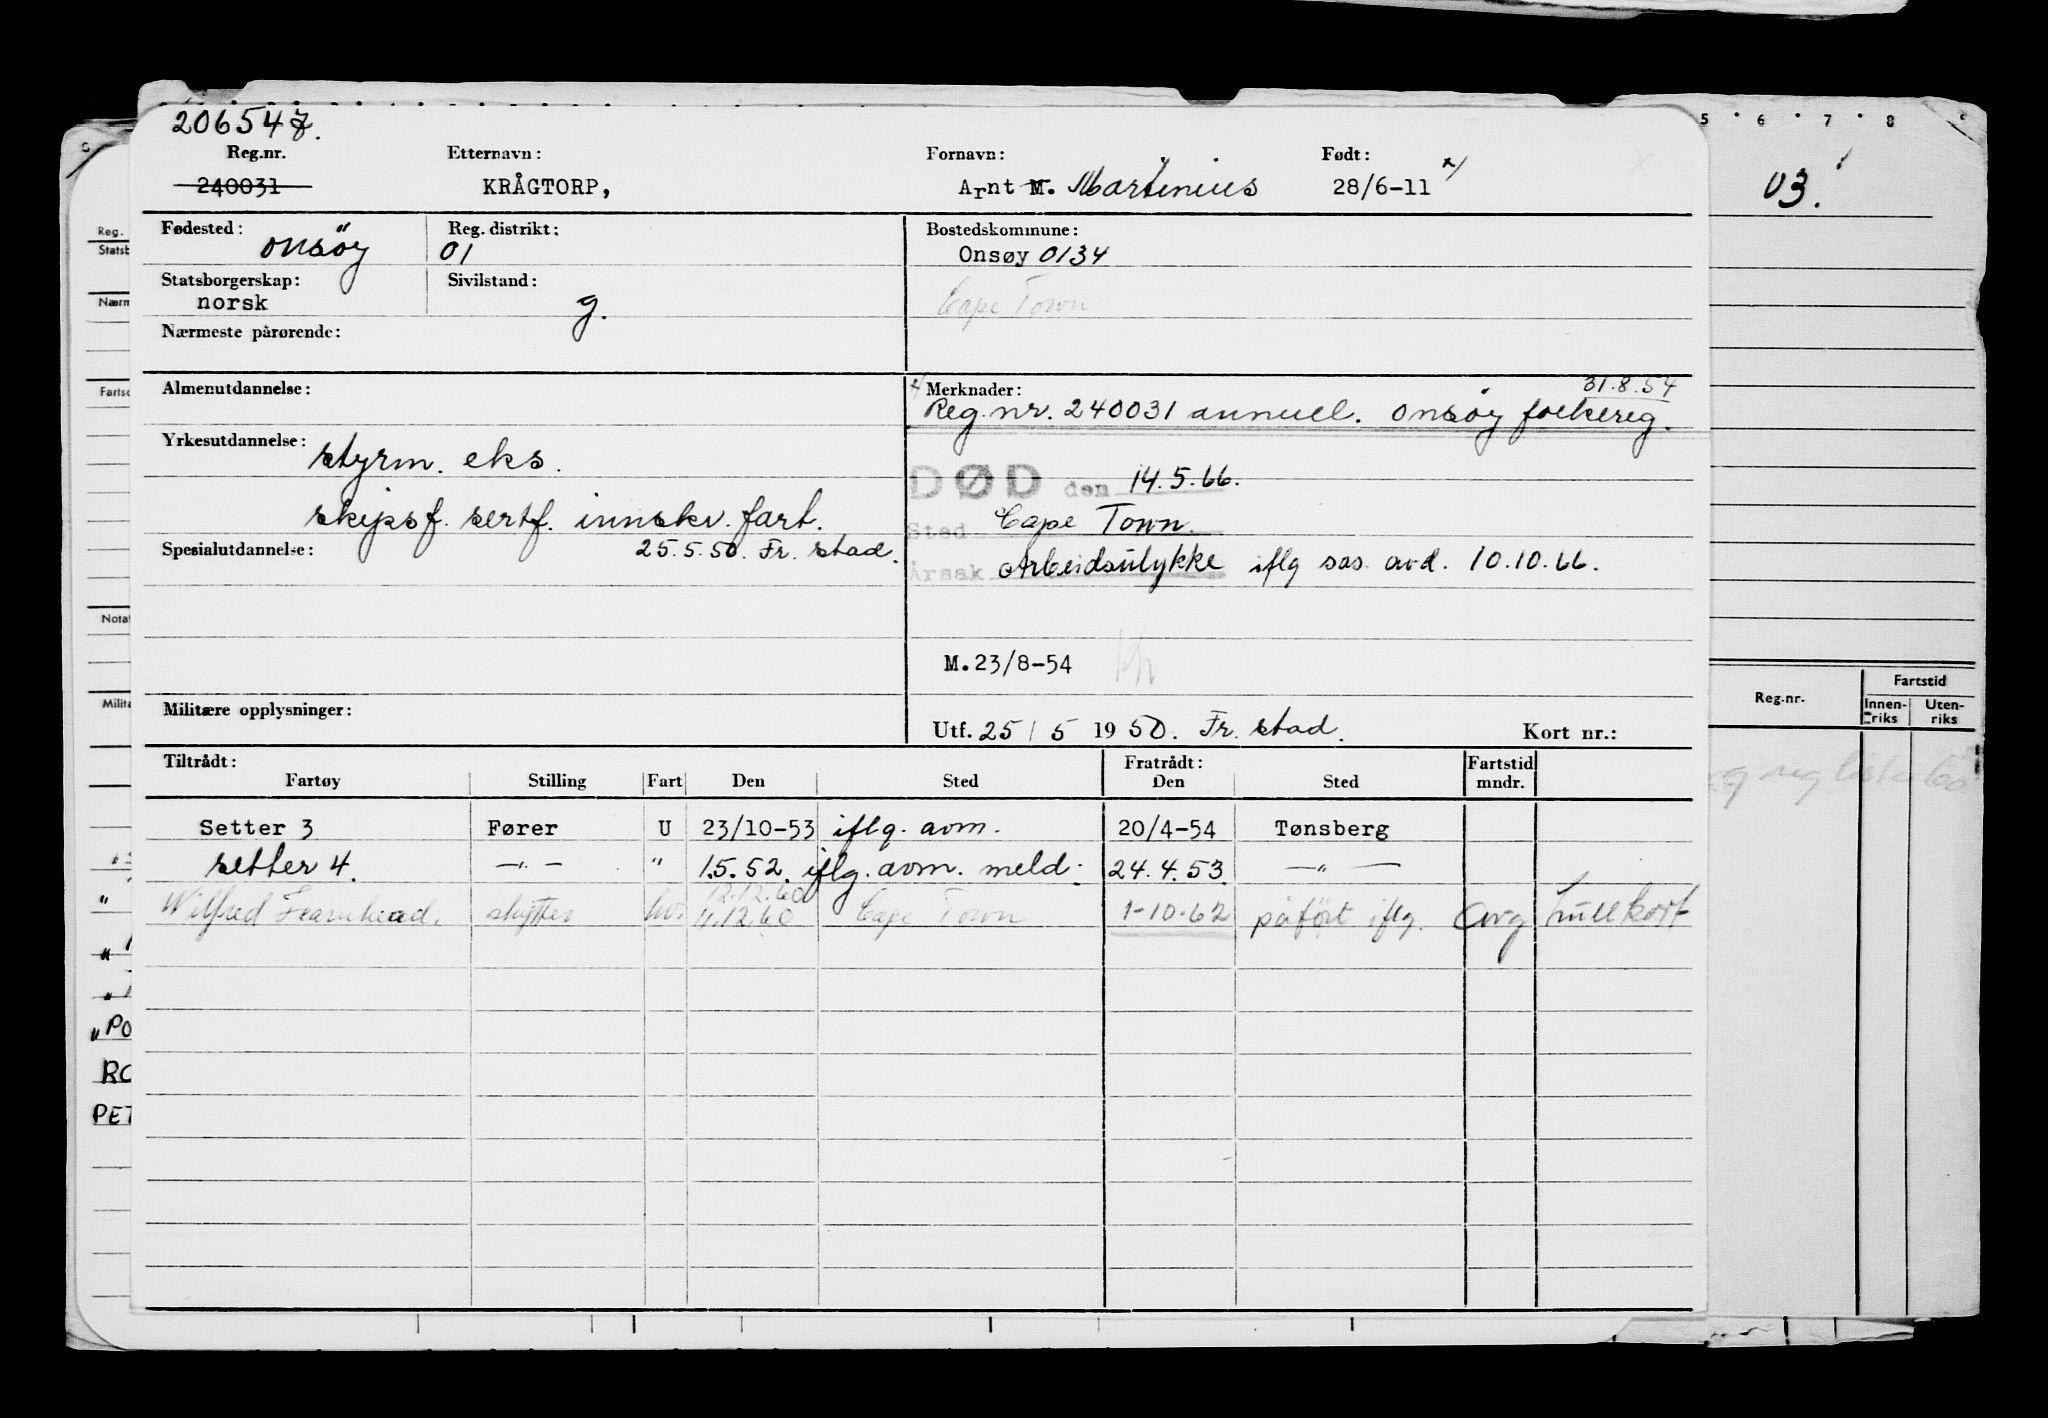 206547.
Reg.nr. Etternavn: Fornavn: Født:
240031 KRÅGTORP, Arnt M. Martinius 28/6-11 x/
Fødested: Onsøy Reg. distrikt: 01 Bostedskommune: Onsøy 0134
Statsborgerskap: norsk Sivilstand: g. Cape Town
Nærmeste pårørende:
Almenutdannelse: x/ Merknader: 31.8.54
Reg.nr. 240031 annull. Onsøy folkereg.
Yrkesutdannelse: styrm. eks.
DØD den 14.5.66.
skipsf. sertf. innskr. fart.
Sted Cape Town.
Spesialutdannelse: 25.5.50. Fr.stad.
Årsak Arbeidsulykke iflg sos. avd. 10.10.66.
M.23/8-54
Militære opplysninger:
Utf. 25/5 1950. Fr.stad. Kort nr.:
Tiltrådt: Fratrådt: Fartstid
Fartøy Stilling Fart Den Sted Den Sted mndr.
Setter 3 Fører U 23/10-53 iflg. avm. 20/4-54 Tønsberg
Setter 4. —"— " 1.5.52. iflg. avm. meld. 24.4.53. —"—
12.12.60
Wilfred Fearnhead. skytter hv. 4.12.60 Cape Town 1-10-62 påført iflg. avg hullkort
5 6 7 8
03.
Reg.
Statsb
Nærm
Fartso
Notat
Milita
"PO
RO
PET
Fartstid
Reg.nr. Innen-riks Uten-riks